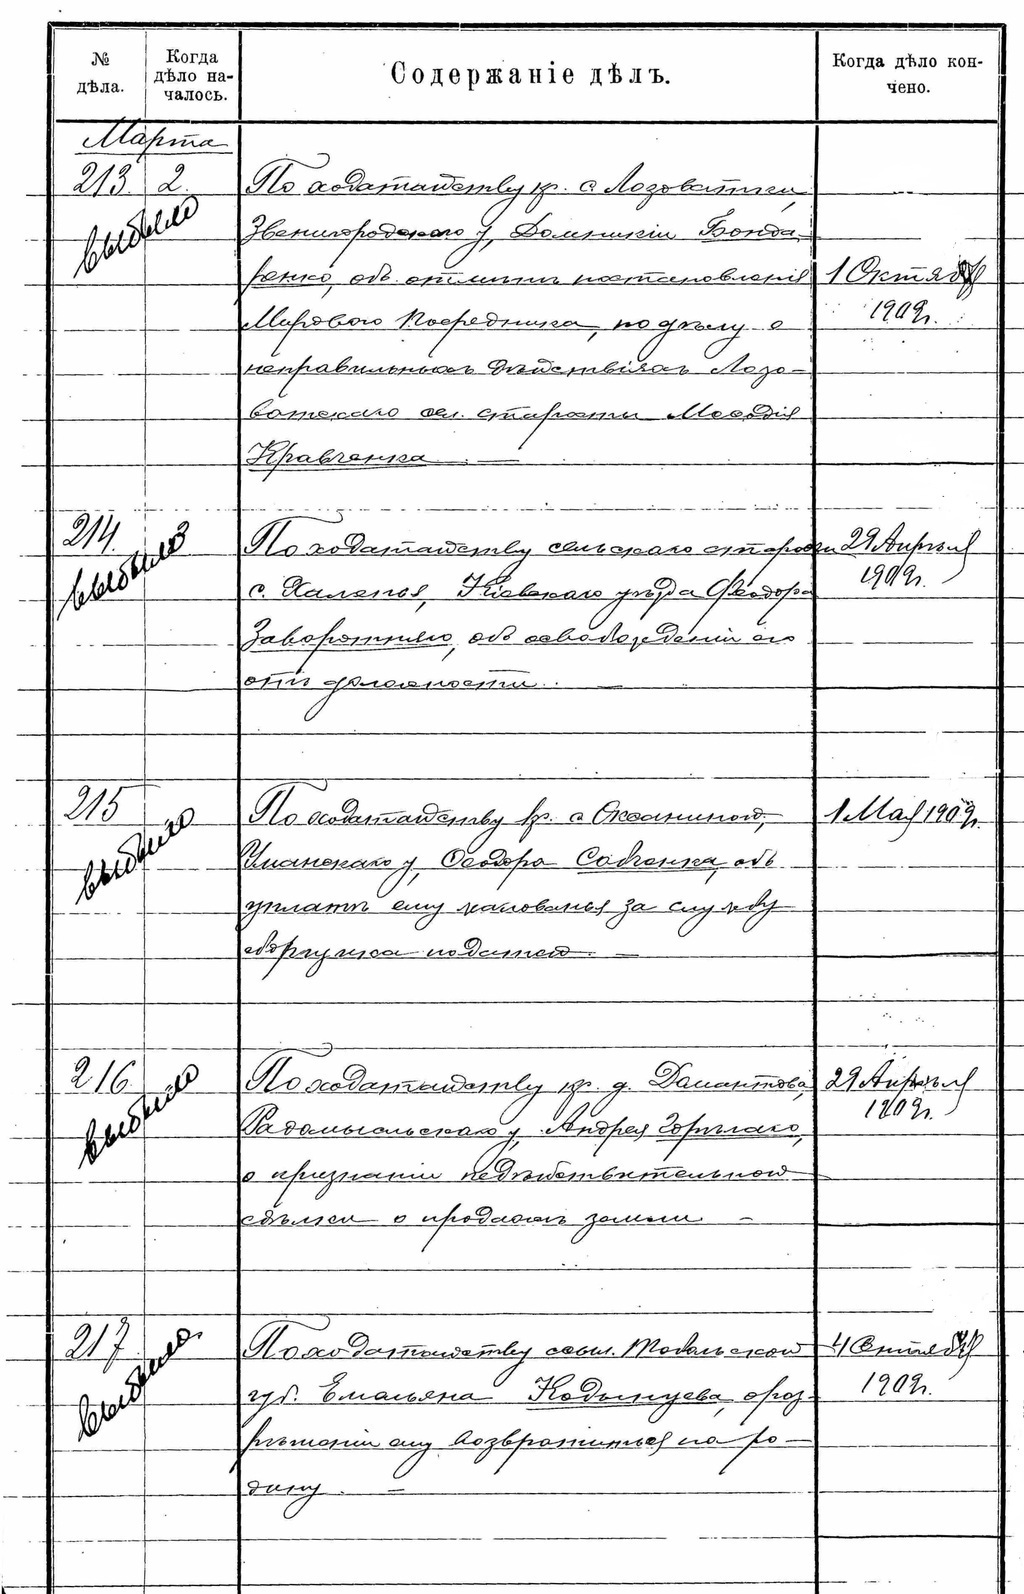 № дѣла.
Когда дѣло на-
чалось.
Содержаніе дѣлъ.
Когда дѣло кон-
чено.
Марта
213. 2.
выбыло
По ходатайству кр. с. Лозоватки,
Звенигородскаго у, Домникіи Бонда-
ренко, объ отмѣнѣ постановленія
Мирового Посредника, по дѣлу о
неправильныхъ дѣйствіяхъ Лозо-
ватскаго сел. старосты
Кравченка. —
1 Октября
1909г.
214. 3
выбыло
По ходатайству сельскаго старосты
с. Халепья, Кіевскаго уѣзда Ѳеодора
Заворотняго, объ освобожденіи его
отъ должности. —
29 Апрѣля
1909г.
215
выбыло
По ходатайству кр. с. Оксаниной,
Уманскаго у, Ѳеодора Савченка, объ
уплатѣ ему жалованья за службу
сборщика податей. —
1 Мая 1909г.
216
выбыло
По ходатайству кр. д. Дамантова,
Радомысльскаго у, Андрея Горѣлаго,
о признаніи недѣйствительной
сдѣлки о продажѣ земли —
29 Апрѣля
1909г.
217
выбыло
По ходатайству ссыл. Тобольской
губ. Емельяна Кодынцева, о раз-
рѣшеніи ему возвратиться на ро-
дину. —
4 Сентября
1909г.